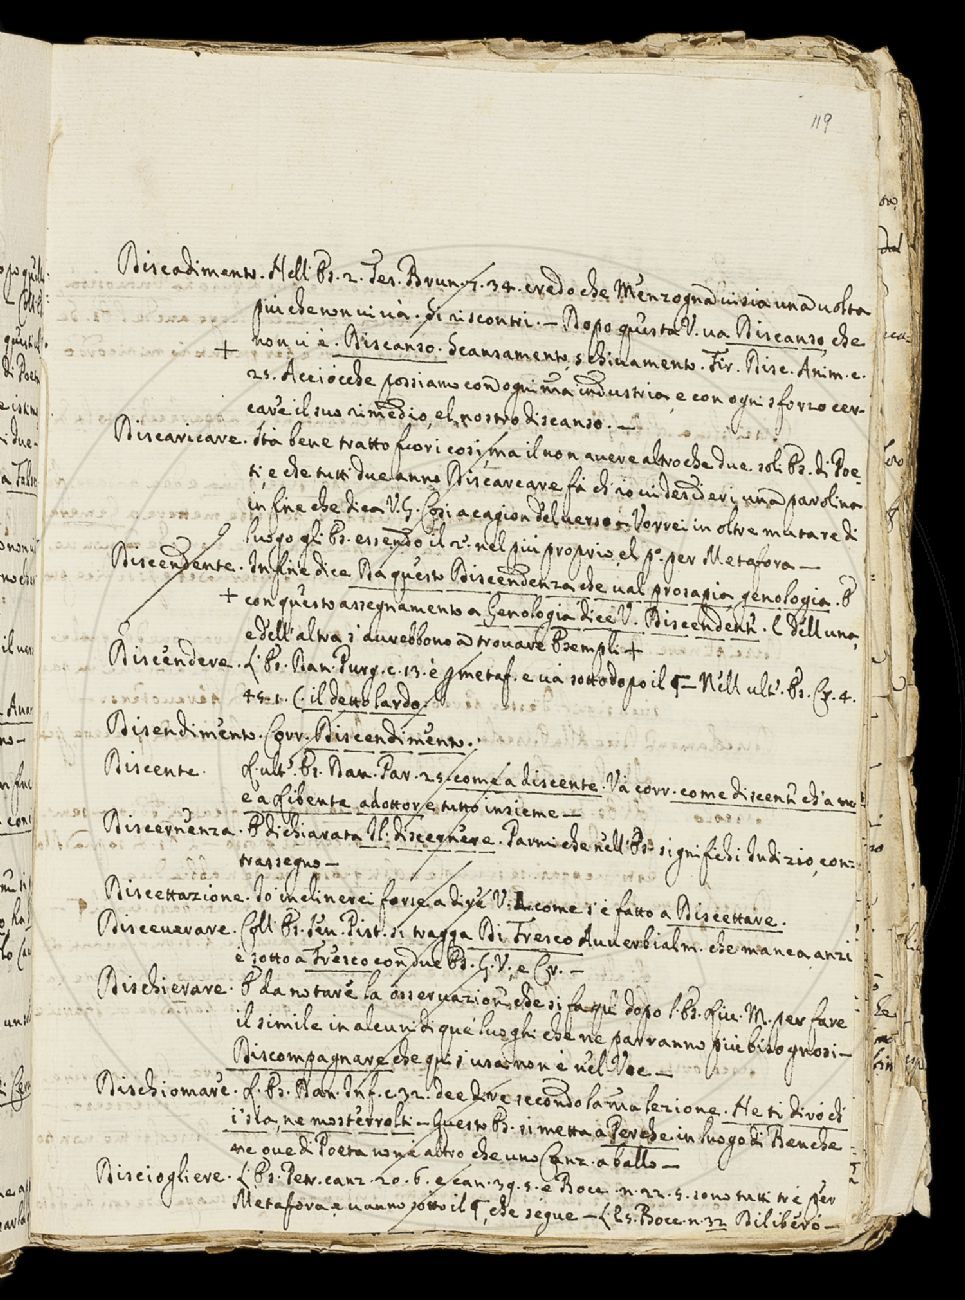 119
Discadimento. Nell' Es. 2. Tes. Brun. 7. 34. credo che Menzogna vi sia una volta
più che non vi và. Si riscontri. — Dopo questa V. va Discanso, che
+ non v'è. Discanso. Scansamento, schivamento. Fir. Disc. Anim. c.
25. Acciocche possiamo con ogni ma industria, e con ogni sforzo cer-
care il suo rimedio, el nostro discanso. —
Discaricare. Sta bene tratto fuori così, ma il non avere altro che due soli Es. di Poe-
ti, e che tutti due anno Discarcare fà ch'io vi desideri una parolina
in fine che dica V. G. Così a cagion del verso — Vorrei in oltre mutare di
luogo gli Es. essendo il 2. nel più proprio, el po. per Metafora —
Discendente. In fine dice Da questo Discendenza che val prosapia genologia. E
+ con questo assegnamento a Genologia dice V. Discendenti. E dell' una,
e dell' altra s'avrebbono a trovare Esempli +
Discendere. L'Es. Dan. Purg. c. 13. è metaf. e và sotto dopo il ¶ — Nell' ult. Es. Cr. 4.
45. 1. C. il detto lardo.
Disendimento. Corr. Discendimento.
Discente. L'ult. Es. Dan. Par. 25. come a discente. Và corr. come discenti ch'a
e a ffibente a dottor e tutto insieme —
Discernenza. E dichiarata Il discegnere. Parmi che nell' Es. signifchi Indizio, con-
trassegno —
Discettazione. Io inclinerei forse a dire V. L. come s'è fatto a Discettare.
Disceverare. Coll' Es. Sen. Pist. si tragga Di Fresco Avverbialm. che manca, anzi
è sotto a Fresco con due Es. G. V. e Cr. —
Dischierare. E da notare la osservazione che si fa quì dopo l'Es. Liv. M. per fare
il simile in alcuni di que' luoghi che ne parranno più bisognosi —
Discompagnare che quì s'usa non è nel Voc —
Dischiomare. L'Es. Dan. Inf. c. 32. dee dire secondo la ma lezione. Ne ti dirò ch'
i' sia, ne mosterrolti — Questo Es. si metta a Perche in luogo di Benche
ne que' di Poeta non è altro che uno Canz. a ballo —
Disciogliere. L'Es. Petr. canz. 20. 6. e can. 39. 5. e Bocc. n. 22. 5. sono tutti trè per
Metafora, e vanno sotto il ¶, che segue — L'Es. Bocc. n. 32 Diliberò —